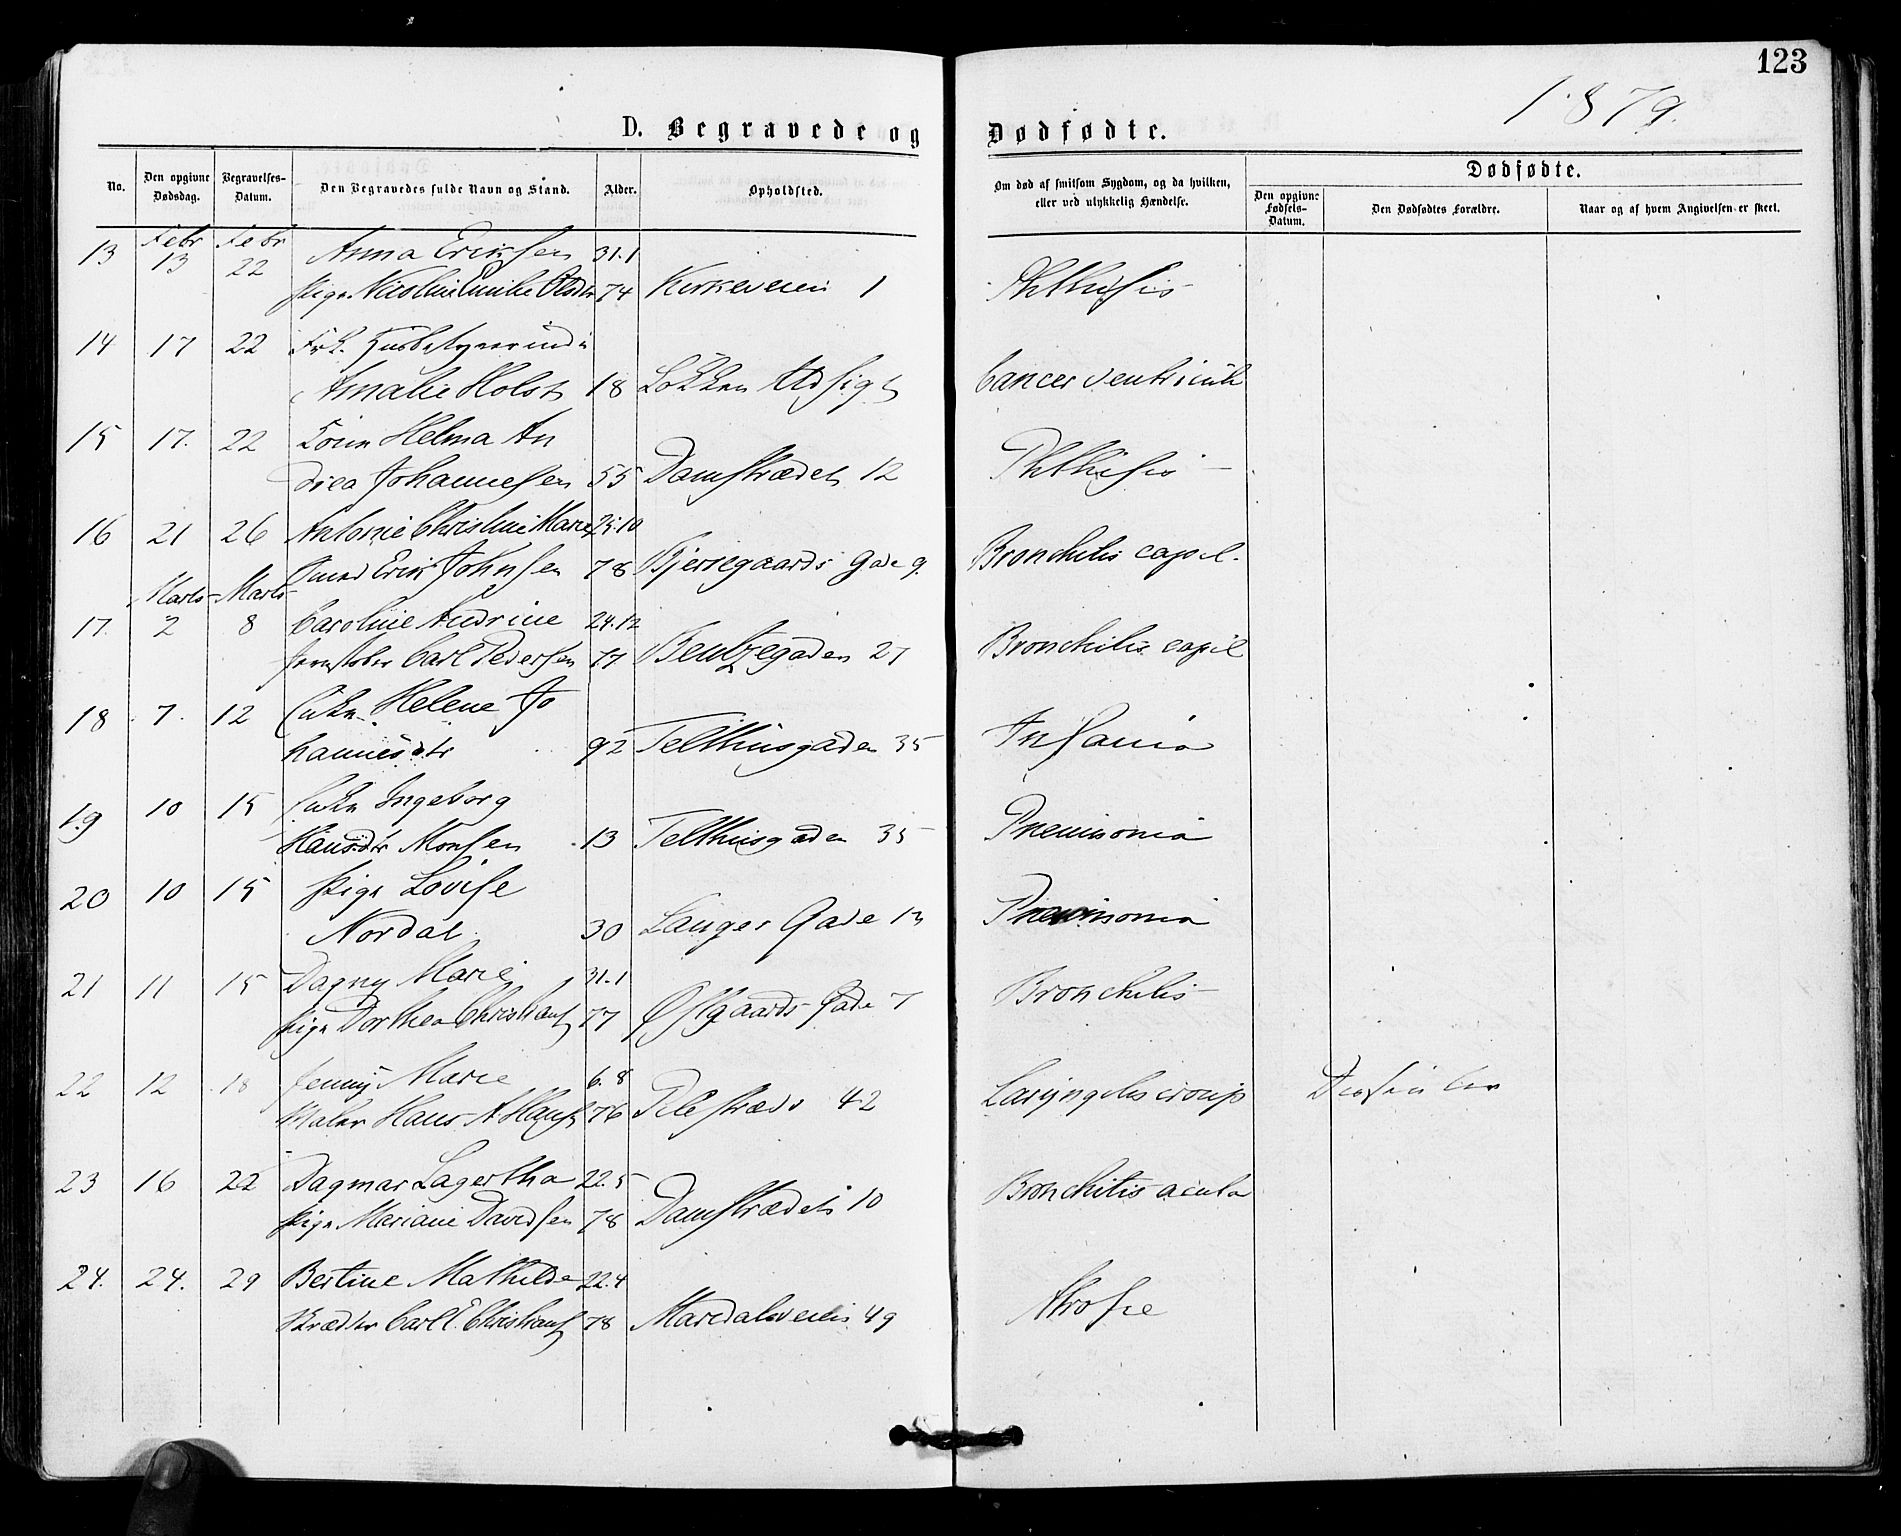 123
1879.
D. Begravede og Dødfødte.
No.
Den opgivne Dødsdag.
Begravelses-Datum.
Den Begravedes fulde Navn og Stand.
Alder.
Opholdsted.
Om død af smitsom Sygdom, og da hvilken, eller ved ulykkelig Hændelse.
Dødfødte.
Den opgivne Fødsels-Datum.
Den Dødfødtes Forældre.
Naar og af hvem Angivelsen er skeet.
Febr Febr
13 13 22 Anna Eriksen 31.1
Pige Nicoline Emilie 74 Kirkeveien 1 Phthisis
14 17 22 Frk.
Amalie Holst 18 Løkken Udsigt Cancer ventriculi
15 17. 22 Helma An
drea Johannesen 55 Damstrædet 12 Phthisis
16 21 26 Antonie Christine Marie 25.10
Smed Erik Johnsen 78 Bjerregaards Gade 9. Bronchitis capil.
Marts Marts
17. 2 8 Caroline Andrine 24.12
Carl Pedersen 77 Bentzegaden 27 Bronchitis capil
18 7. 12 Enke Helene Jo
hannesdtr 92 Telthusgaden 35 Insania
19 10 15 Enke Ingeborg
Hansdtr Monsen 13 Telthusgaden 35 Pneumonia
20 10 15 Pige Lovise
Nordal 30 Langes Gade 13 Pneumonia
21 11 15 Dagny Marie 31.1
Pige Dorthea Christians 77 Østgaards Gade 7 Bronchitis
22 12 18 Jenny Marie 6.8
Maler Hans A Hans 76 Pilestræde 42 Laryngitis croup
23 16 22 Dagmar Lagertha 22.5
Pige Mariane Davidsen 78 Damstrædet 10 Bronchitis acuta
24. 24. 29 Bertine Mathilde 22.4
Skrædder Carl E. Christians 78 Maridalsveien 49 Atrofie